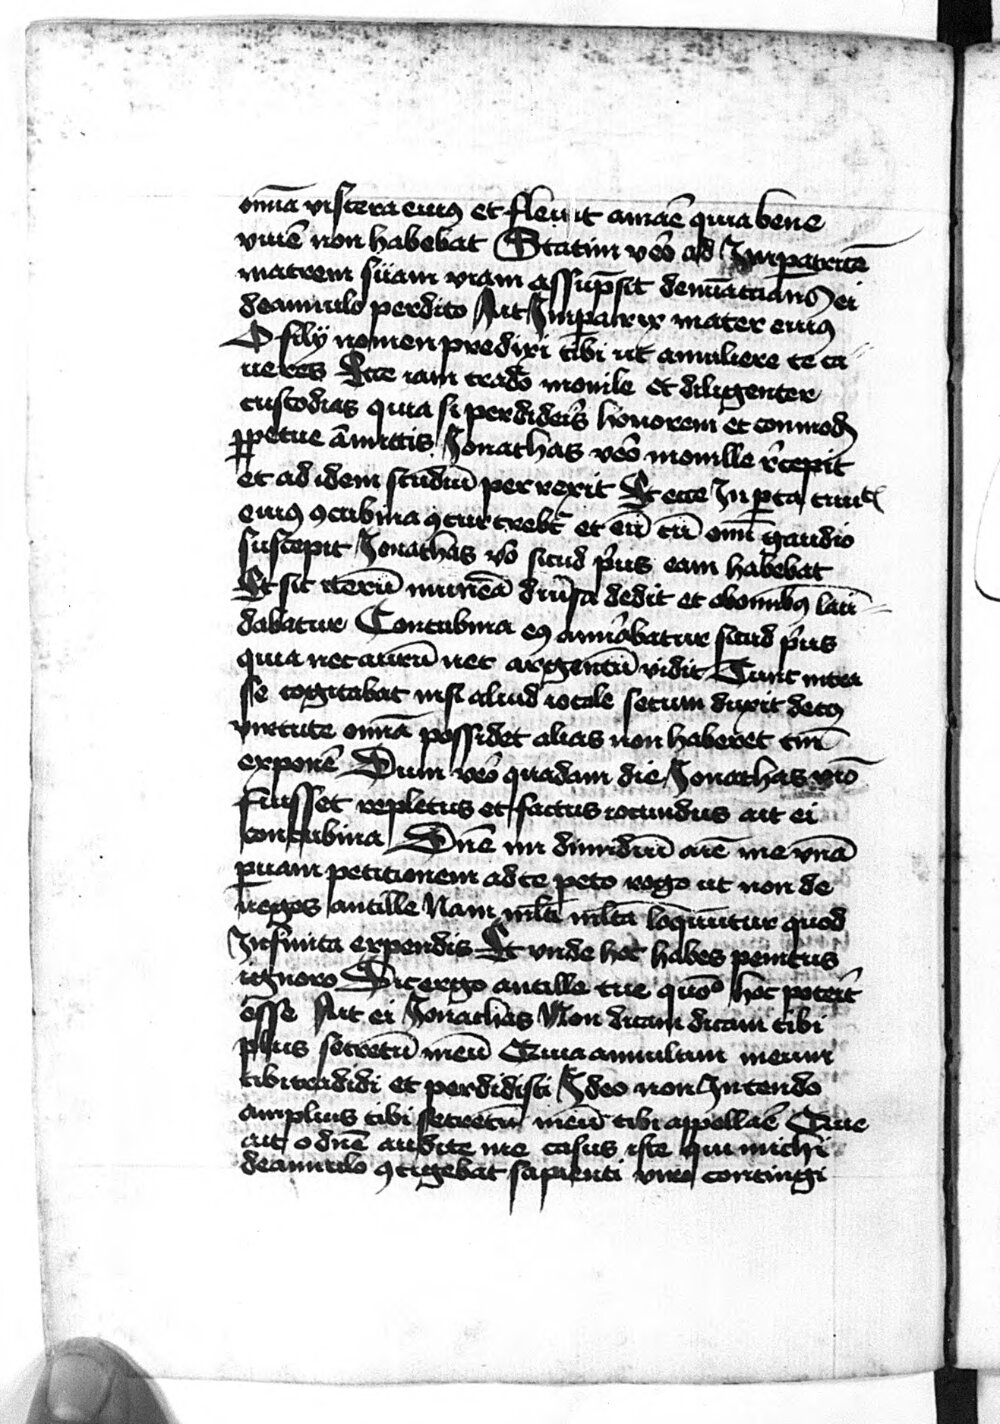 om̄a viscera eius et fleuit amare quia bene
viuē non habebat Statim v̄o ad Imperatricē
matrem suam viam assūpsit denuncians ei
de annulo perdito Ait Imperatrix mater eius
O fily nomen predixi tibi ut a muliere te ca
ueres Ecce iam trado monile et diligenter
custodias quia si perdideris honorem et commod
ꝑpetue amittis Jonathas v̄o monille recepit
et ad idem studiū perrexit Et ecce In porta ciuit
eius ꝯcubina ꝯcurrebat et eū cū omni gaudio
suscepit Jonathas v̄o sicud prius eam habebat
Et sic iterū munera diu̅sa dedit et ab omnibus lau
dabatur Concubina eius amirabatur sicud prius
quia nec aurū nec argentū vidit Tunc intra
se cogitabat nisi aliud iocale secum duxit de cuius
virtute omnia possidet alias non haberet
exponē Dum v̄o quadam die Jonathas vino
fuisset repletus et factus iocundus ait ei
concubina Dn̄e mi vnā
paruam petitionem ad te peto rogo ut non de
neges ancille Nam mlti mlta loquūtur quod
Infinita expendis Et vnde hoc habes penitus
ignoro Dic ergo ancille tue quō hoc poterit
esse Ait ei Jonathas Non dicam dicam tibi
plus secretū meū Quia annulum meum
tibi tradidi et perdidisti Ideo non Intendo
amplius tibi secretū meū tibi appellare Que
ait o dn̄e audite me casus iste qui michi
de annulo ꝯtigebat sapienti viro contingi